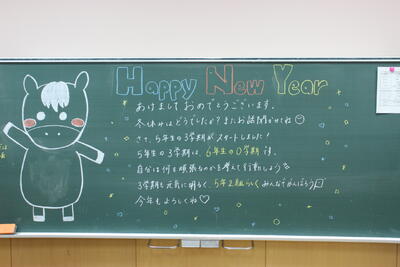 Happy New Year
あけまして おめでとうございます。
冬休みはどうでしたか？またお話聞かせてね
さて、5年生の3学期がスタートしました！
5年生の3学期は、6年生の0学期です。
自分は何を頑張るのかを考えて行動しよう
3学期も元気に明るく、5年2組らしくみんなでがんばろう
今年もよろしくね♡